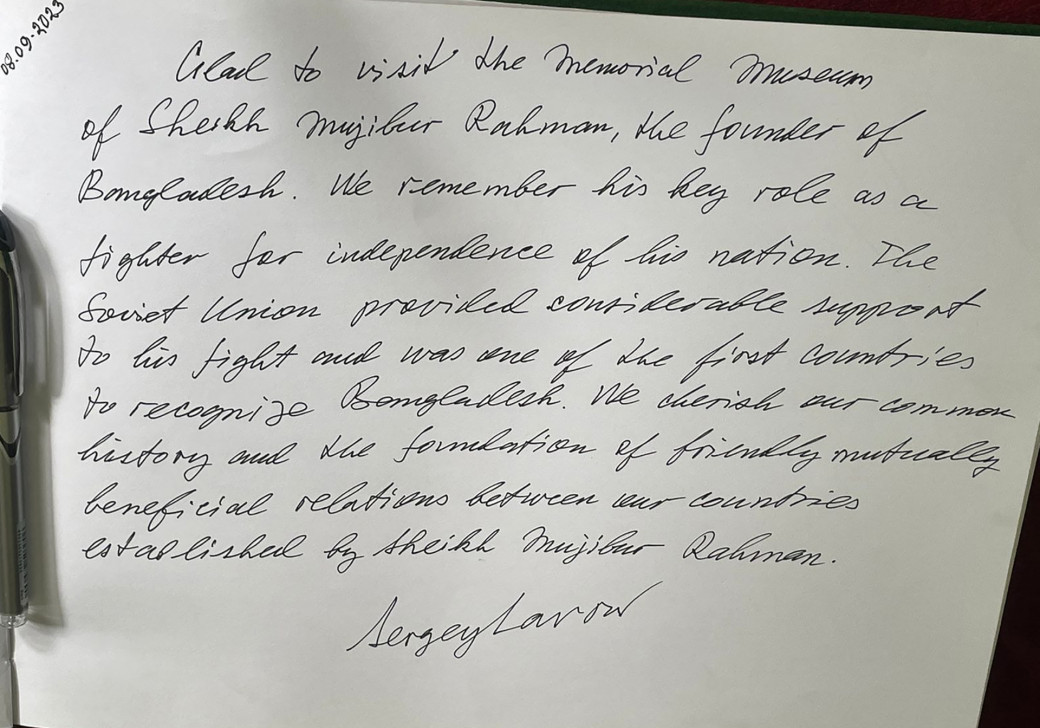 08.09.2023
Glad to visit the Memorial Museum
of Sheikh Mujibur Rahman, the founder of
Bangladesh. We remember his key role as a
fighter for independence of his nation. The
Soviet Union provided considerable support
to his fight and was one of the first countries
to recognize Bangladesh. We cherish our common
history and the foundation of friendly mutually
beneficial relations between our countries
established by Sheikh Mujibur Rahman.
Sergey Lavrov